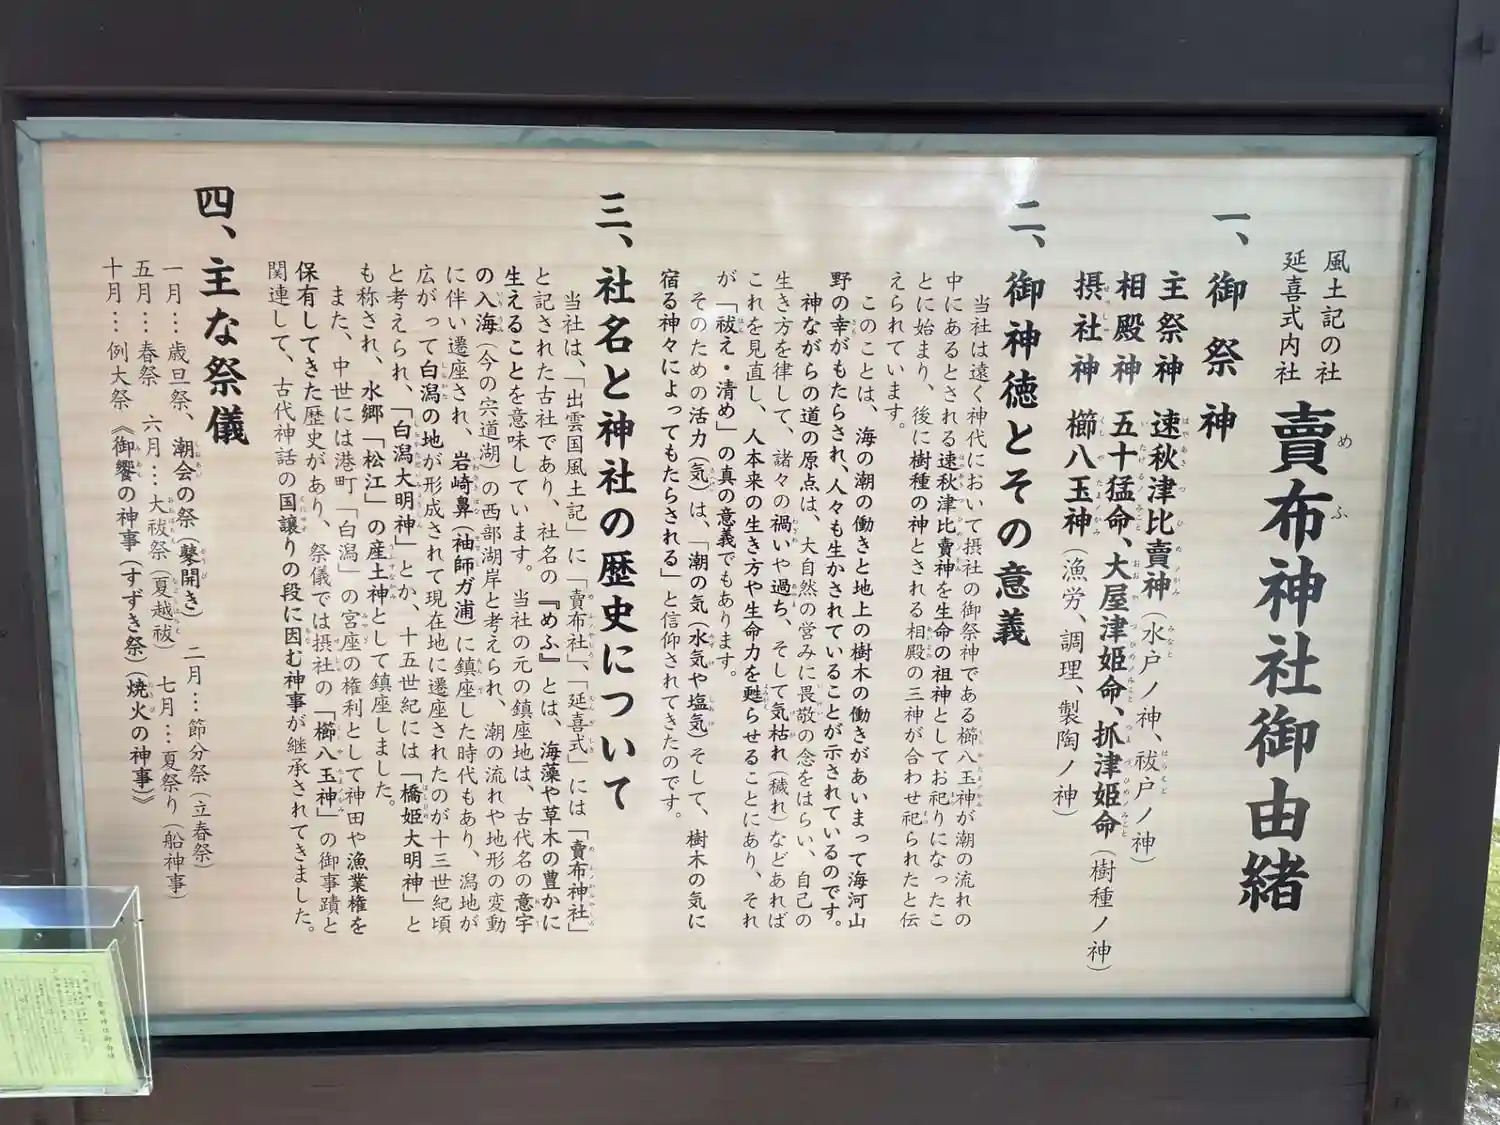 風土記の社
延喜式内社
賣布神社御由緒
一、御祭神
主祭神 速秋津比賣神(水戸ノ神、祓戸ノ神)
相殿神 五十猛命、大屋津姫命、抓津姫命(樹種ノ神)
摂社神 櫛八玉神(漁労、調理、製陶ノ神)
二、御神徳とその意義
当社は遠く神代において摂社の御祭神である櫛八玉神が潮の流れの
中にあるとされる速秋津比賣神を生命の祖神としてお祀りになったこ
とに始まり、後に樹種の神とされる相殿の三神が合わせ祀られたと伝
えられています。
このことは、海の潮の働きと地上の樹木の働きがあいまって海河山
野の幸がもたらされ、人々も生かされていることが示されているのです。
神ながらの道の原点は、大自然の営みに畏敬の念をはらい、自己の
生き方を律して、諸々の禍いや過ち、そして気枯れ(穢れ)などあれば
これを見直し、人本来の生き方や生命力を甦らせることにあり、それ
が「祓え・清め」の真の意義でもあります。
そのための活力(気)は、「潮の気(水気や塩気)そして、樹木の気に
宿る神々によってもたらされる」と信仰されてきたのです。
三、社名と神社の歴史について
当社は、「出雲国風土記」に「賣布社」、「延喜式」には「賣布神社」
と記された古社であり、社名の『めふ』とは、海藻や草木の豊かに
生えることを意味しています。当社の元の鎮座地は、古代名の意宇
の入海(今の宍道湖)の西部湖岸と考えられ、潮の流れや地形の変動
に伴い遷座され、岩崎鼻(袖師ガ浦)に鎮座した時代もあり、潟地が
広がって白潟の地が形成されて現在地に遷座されたのが十三世紀頃
と考えられ、「白潟大明神」とか、十五世紀には「橋姫大明神」と
も称され、水郷「松江」の産土神として鎮座しました。
また、中世には港町「白潟」の宮座の権利として神田や漁業権を
保有してきた歴史があり、祭儀では摂社の「櫛八玉神」の御事蹟と
関連して、古代神話の国譲りの段に因む神事が継承されてきました。
四、主な祭儀
一月…歳旦祭、潮会の祭(鼕開き) 二月…節分祭(立春祭)
五月…春祭 六月…大祓祭(夏越祓) 七月…夏祭り(船神事)
十月…例大祭《御饗の神事(すずき祭)(焼火の神事)》
賣布神社御由緒